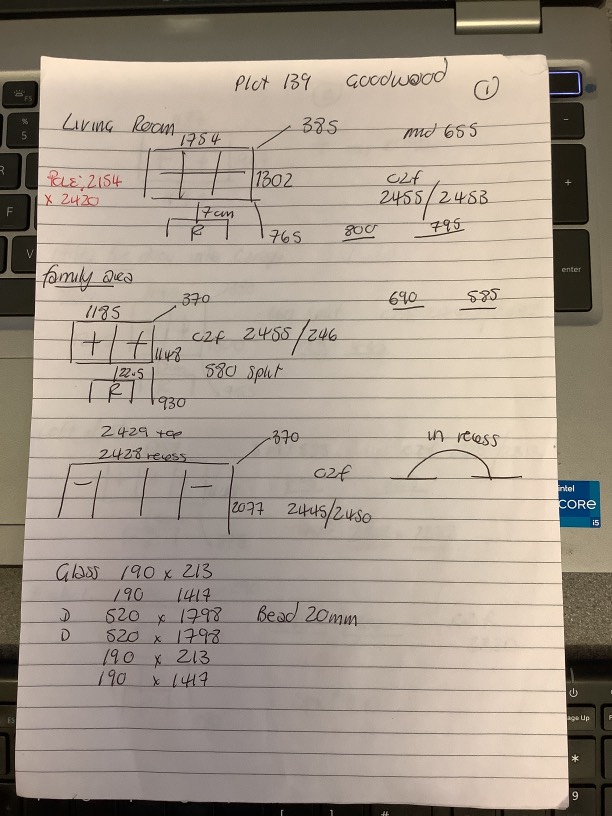 Plot 139 Goodwood 1
Living Room
1754
385
mid 655
POLE: 2154
x 2420
1302
c2f
2455/2453
7cm
R
765
800
795
family area
1185
370
690
585
1148
c2f 2455/246
580 split
122.5
R
930
2429 top
2428 recess
370
in recess
c2f
2077
2445/2450
Glass 190 x 213
190 1417
D 520 x 1798 Bead 20mm
D 520 x 1798
190 x 213
190 x 1417
intel
CORE
i5
enter
Page Up
F
V
R
%
5
F5
+
-
*
9
[
]
#